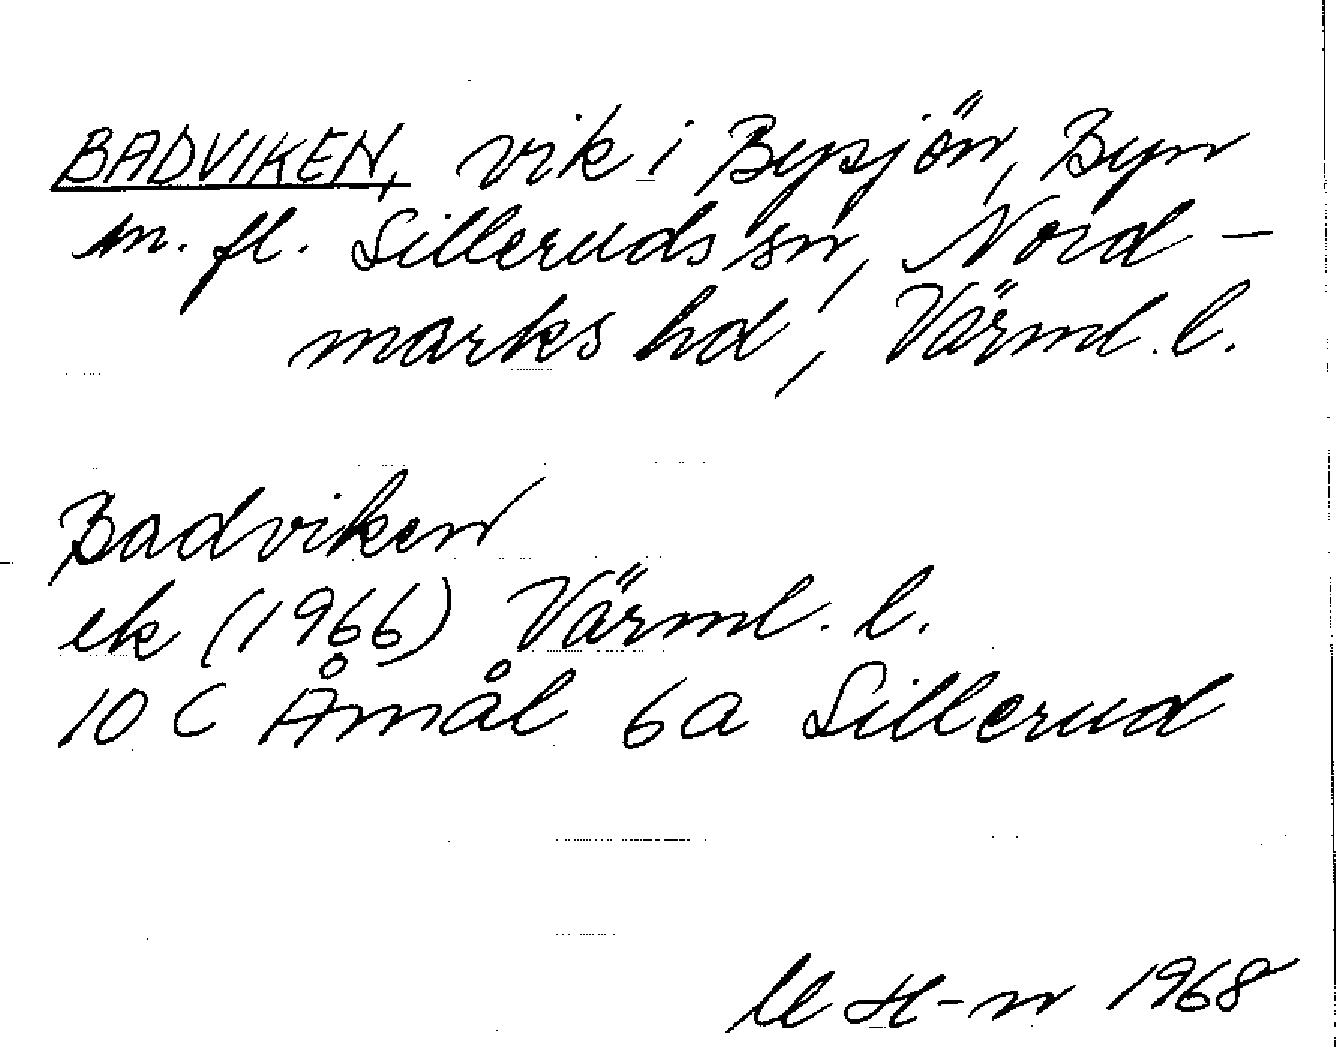 BADVIKEN, vik i Bysjön, Byn
m. fl. Silleruds sn, Nord-
marks hd, Värml. l.
Badviken
ek (1966) Värml. l.
10 C Åmål 6a Sillerud
H-n 1968